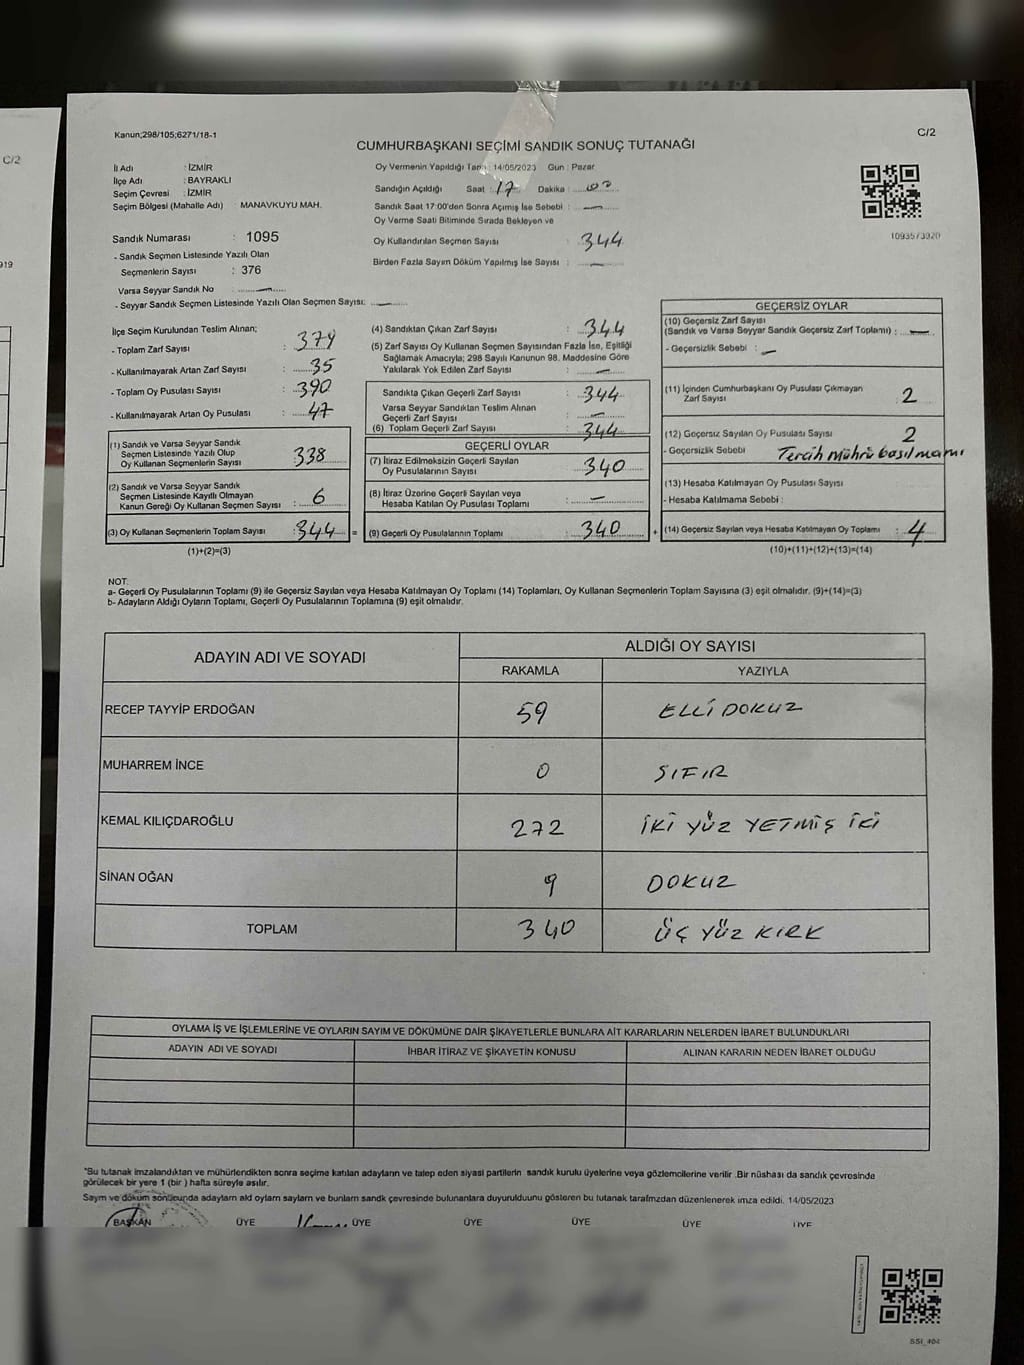 C/2
919
Kanun;298/105;6271/18-1
C/2
CUMHURBAŞKANI SEÇİMİ SANDIK SONUÇ TUTANAĞI
İl Adı : İZMİR
İlçe Adı : BAYRAKLI
Seçim Çevresi : İZMİR
Seçim Bölgesi (Mahalle Adı) : MANAVKUYU MAH.
Oy Vermenin Yapıldığı Tarih : 14/05/2023 Gün : Pazar
Sandığın Açıldığı Saat : 17 Dakika : 00
Sandık Saat 17:00'den Sonra Açımış İse Sebebi : —
Oy Verme Saati Bitiminde Sırada Bekleyen ve
Oy Kullandırılan Seçmen Sayısı : 344
Birden Fazla Sayım Döküm Yapılmış İse Sayısı : —
1093573920
Sandık Numarası : 1095
- Sandık Seçmen Listesinde Yazılı Olan
Seçmenlerin Sayısı : 376
Varsa Seyyar Sandık No : —
- Seyyar Sandık Seçmen Listesinde Yazılı Olan Seçmen Sayısı: —
İlçe Seçim Kurulundan Teslim Alınan;
- Toplam Zarf Sayısı : 379
- Kullanılmayarak Artan Zarf Sayısı : 35
- Toplam Oy Pusulası Sayısı : 390
- Kullanılmayarak Artan Oy Pusulası : 47
(1) Sandık ve Varsa Seyyar Sandık
Seçmen Listesinde Yazılı Olup
Oy Kullanan Seçmenlerin Sayısı 338
(2) Sandık ve Varsa Seyyar Sandık
Seçmen Listesinde Kayıllı Olmayan
Kanun Gereği Oy Kullanan Seçmen Sayısı : 6
(3) Oy Kullanan Seçmenlerin Toplam Sayısı : 344 =
(1)+(2)=(3)
(4) Sandıktan Çıkan Zarf Sayısı : 344
(5) Zarf Sayısı Oy Kullanan Seçmen Sayısından Fazla İse, Eşitliği
Sağlamak Amacıyla; 298 Sayılı Kanunun 98. Maddesine Göre
Yakılarak Yok Edilen Zarf Sayısı : —
Sandıkta Çıkan Geçerli Zarf Sayısı : 344
Varsa Seyyar Sandıktan Teslim Alınan
Geçerli Zarf Sayısı : —
(6) Toplam Geçerli Zarf Sayısı : 344
GEÇERLİ OYLAR
(7) İtiraz Edilmeksizin Geçerli Sayılan
Oy Pusulalarının Sayısı : 340
(8) İtiraz Üzerine Geçerli Sayılan veya
Hesaba Katılan Oy Pusulası Toplamı : —
(9) Geçerli Oy Pusulalarının Toplamı : 340 +
GEÇERSİZ OYLAR
(10) Geçersiz Zarf Sayısı
(Sandık ve Varsa Seyyar Sandık Geçersiz Zarf Toplamı) : —
- Geçersizlik Sebebi : —
(11) İçinden Cumhurbaşkanı Oy Pusulası Çıkmayan
Zarf Sayısı : 2
(12) Geçersiz Sayılan Oy Pusulası Sayısı : 2
- Geçersizlik Sebebi : Tercih Mührü basılmamı
(13) Hesaba Katılmayan Oy Pusulası Sayısı :
- Hesaba Katılmama Sebebi :
(14) Geçersiz Sayılan veya Hesaba Katılmayan Oy Toplamı : 4
(10)+(11)+(12)+(13)=(14)
NOT:
a- Geçerli Oy Pusulalarının Toplamı (9) ile Geçersiz Sayılan veya Hesaba Katılmayan Oy Toplamı (14) Toplamları, Oy Kullanan Seçmenlerin Toplam Sayısına (3) eşit olmalıdır. (9)+(14)=(3)
b- Adayların Aldığı Oyların Toplamı, Geçerli Oy Pusulalarının Toplamına (9) eşit olmalıdır.
ADAYIN ADI VE SOYADI
ALDIĞI OY SAYISI
RAKAMLA YAZIYLA
RECEP TAYYİP ERDOĞAN 59 ELLİ DOKUZ
MUHARREM İNCE 0 SIFIR
KEMAL KILIÇDAROĞLU 272 İKİ YÜZ YETMİŞ İKİ
SİNAN OĞAN 9 DOKUZ
TOPLAM 340 ÜÇ YÜZ KIRK
OYLAMA İŞ VE İŞLEMLERİNE VE OYLARIN SAYIM VE DÖKÜMÜNE DAİR ŞİKAYETLERLE BUNLARA AİT KARARLARIN NELERDEN İBARET BULUNDUKLARI
ADAYIN ADI VE SOYADI İHBAR İTİRAZ VE ŞİKAYETİN KONUSU ALINAN KARARIN NEDEN İBARET OLDUĞU
*Bu tutanak imzalandıktan ve mühürlendikten sonra seçime katılan adayların ve talep eden siyasi partilerin sandık kurulu üyelerine veya gözlemcilerine verilir .Bir nüshası da sandık çevresinde
görülecek bir yere 1 (bir ) hafta süreyle asılır.
Sayım ve döküm sonucunda adayların ald oyların sayların ve bunların sandk çevresinde bulunanlara duyurulduunu gösteren bu tutanak tarafmzdan düzenlenerek imza edildi. 14/05/2023
BAŞKAN ÜYE ÜYE ÜYE ÜYE ÜYE ÜYE
SSI_404